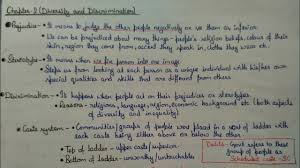 Chapter-2 (Diversity and Discrimination)
• Prejudice - • It means to judge the other people negatively or see them as inferior.
• We can be prejudiced about many things - people's religion beliefs, colour of their
skin, region they come from, accent they speak in, clothes they wear etc.
• Stereotype - • It means when we fix person into an image
• Stops us from looking at each person as a unique individual with his/her own
special qualities and skills that are different from others
• Discrimination - • It happens when people act on their prejudices or stereotypes
• Reasons - religious, language, region, economic background etc (both aspects
of diversity and inequality)
• Caste system - • Communities/groups of people were placed in a sort of ladder with
each caste being either above or below the other.
• Top of ladder - upper caste/superior
• Bottom of ladder - unworthy/untouchables
Dalits - Govt refers to these
group of people as
Scheduled caste - SC